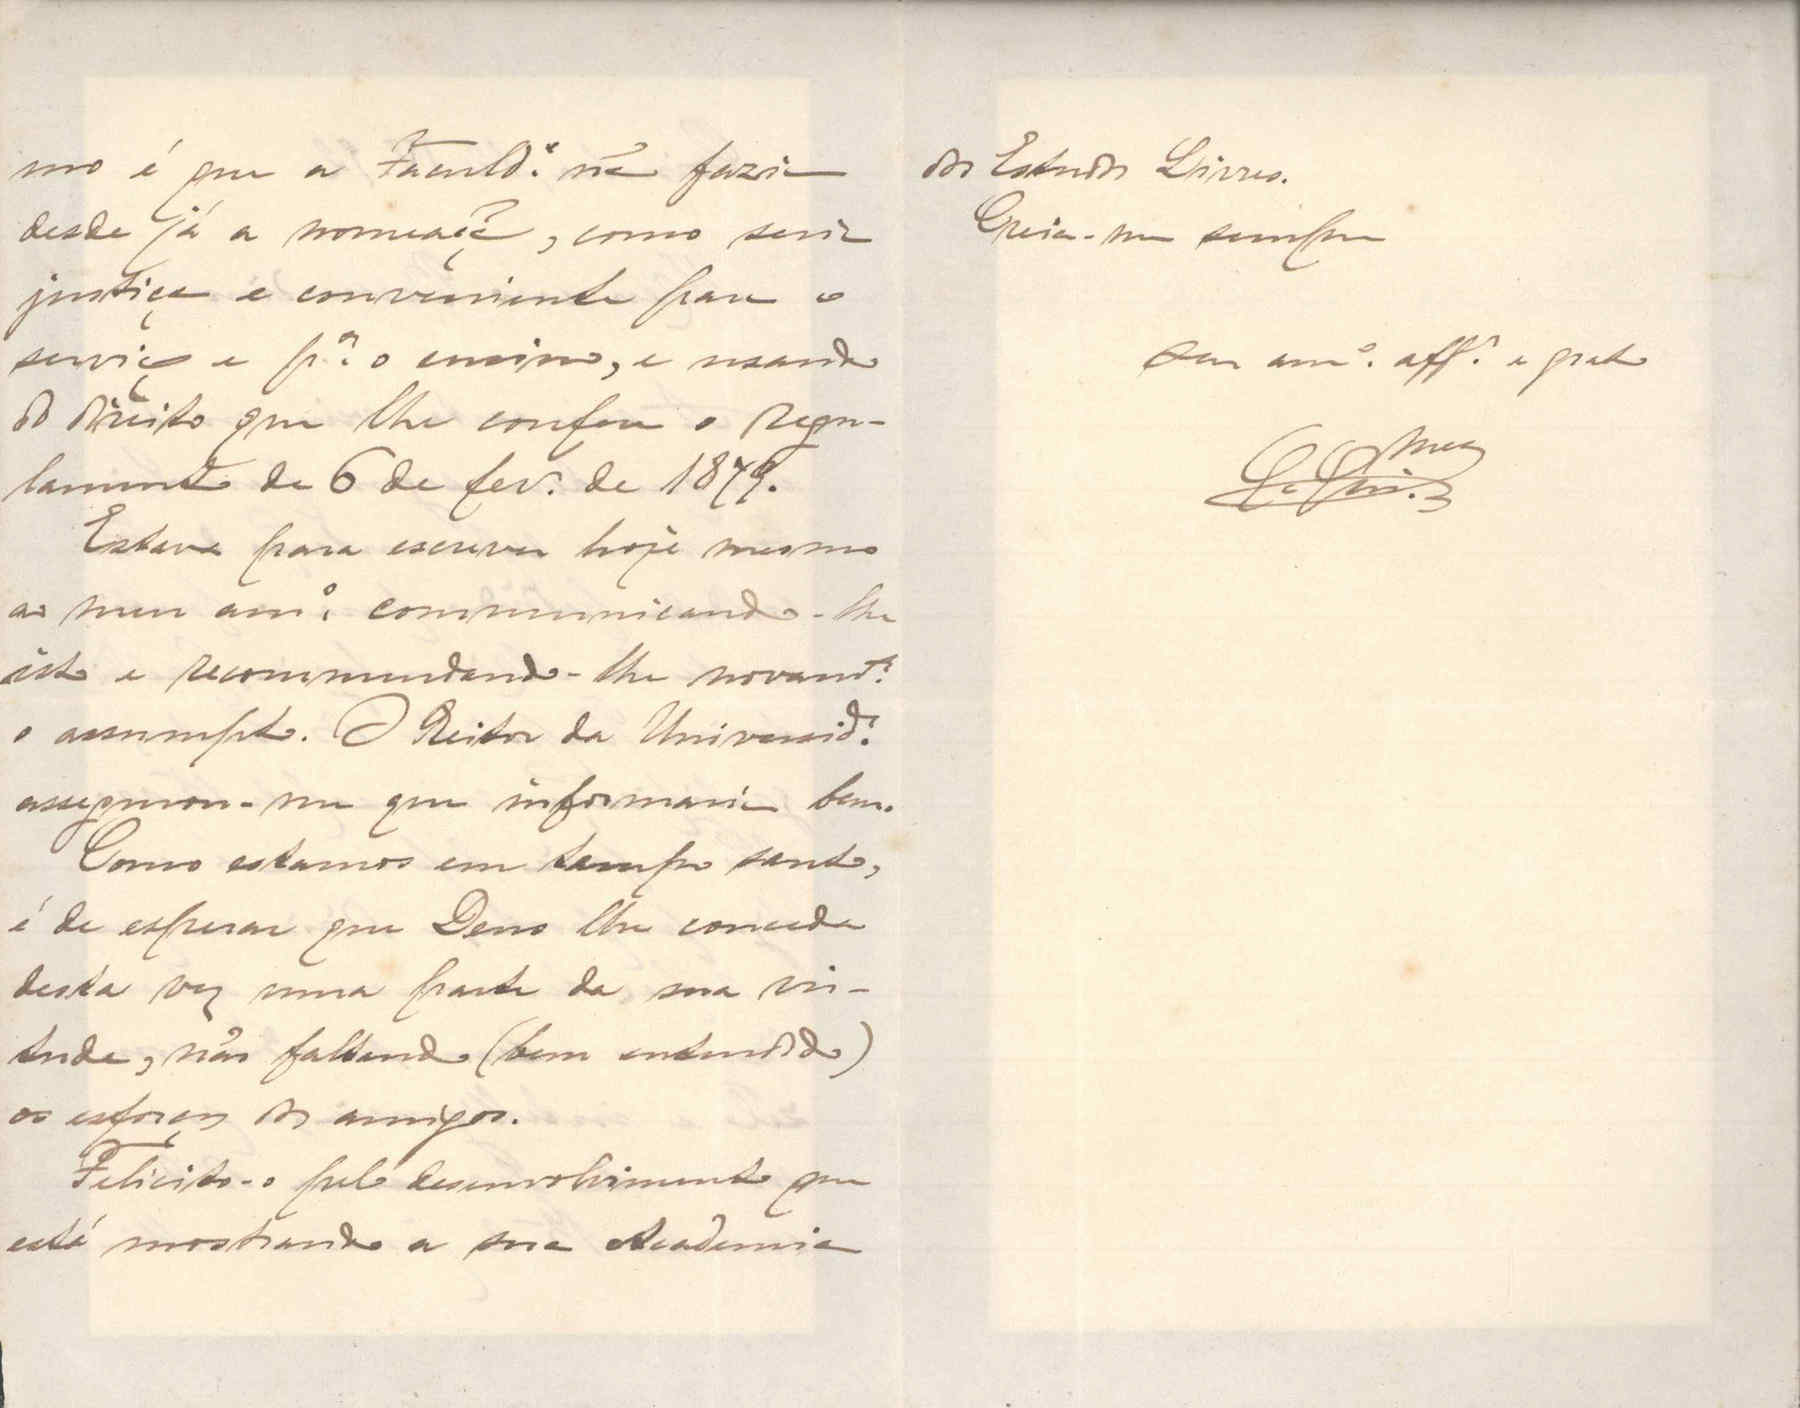 mo é que a Faculd.e nã fazia
desde já a nomeaçã, como seria
justiça e conveniente para o
serviço e p.a o ensino, e usando
do direito que lhe confere o regu-
lamento de 6 de fev. de 1879.
Estava para escrever hoje mesmo
ao meu am.o communicando-lhe
isto e recommendando-lhe novamt.e
o assumpto. O Reitor da Universid.e
assegurou-me que informaria bem.
Como estamos em tempo santo,
é de esperar que Deus lhe conceda
desta vez uma parte da sua vir-
tude, não faltando (bem entendido)
os esforços dos amigos.
Felicito-o pelo desenvolvimento que
está mostrando a sua Academia
dos Estudos Livres.
Creia-me sempre
Seu am.o aff.o e grato